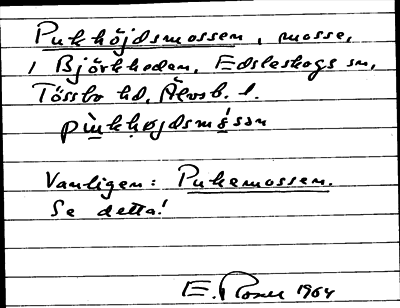 Pukhöjdsmossen, mosse,
i Björkhedan, Edsleskogs sn,
Tössbo hd, Älvsb. l.
pùkhøjdsmósən
Vanligen: Pukemossen.
Se detta!
E. Rosell 1964